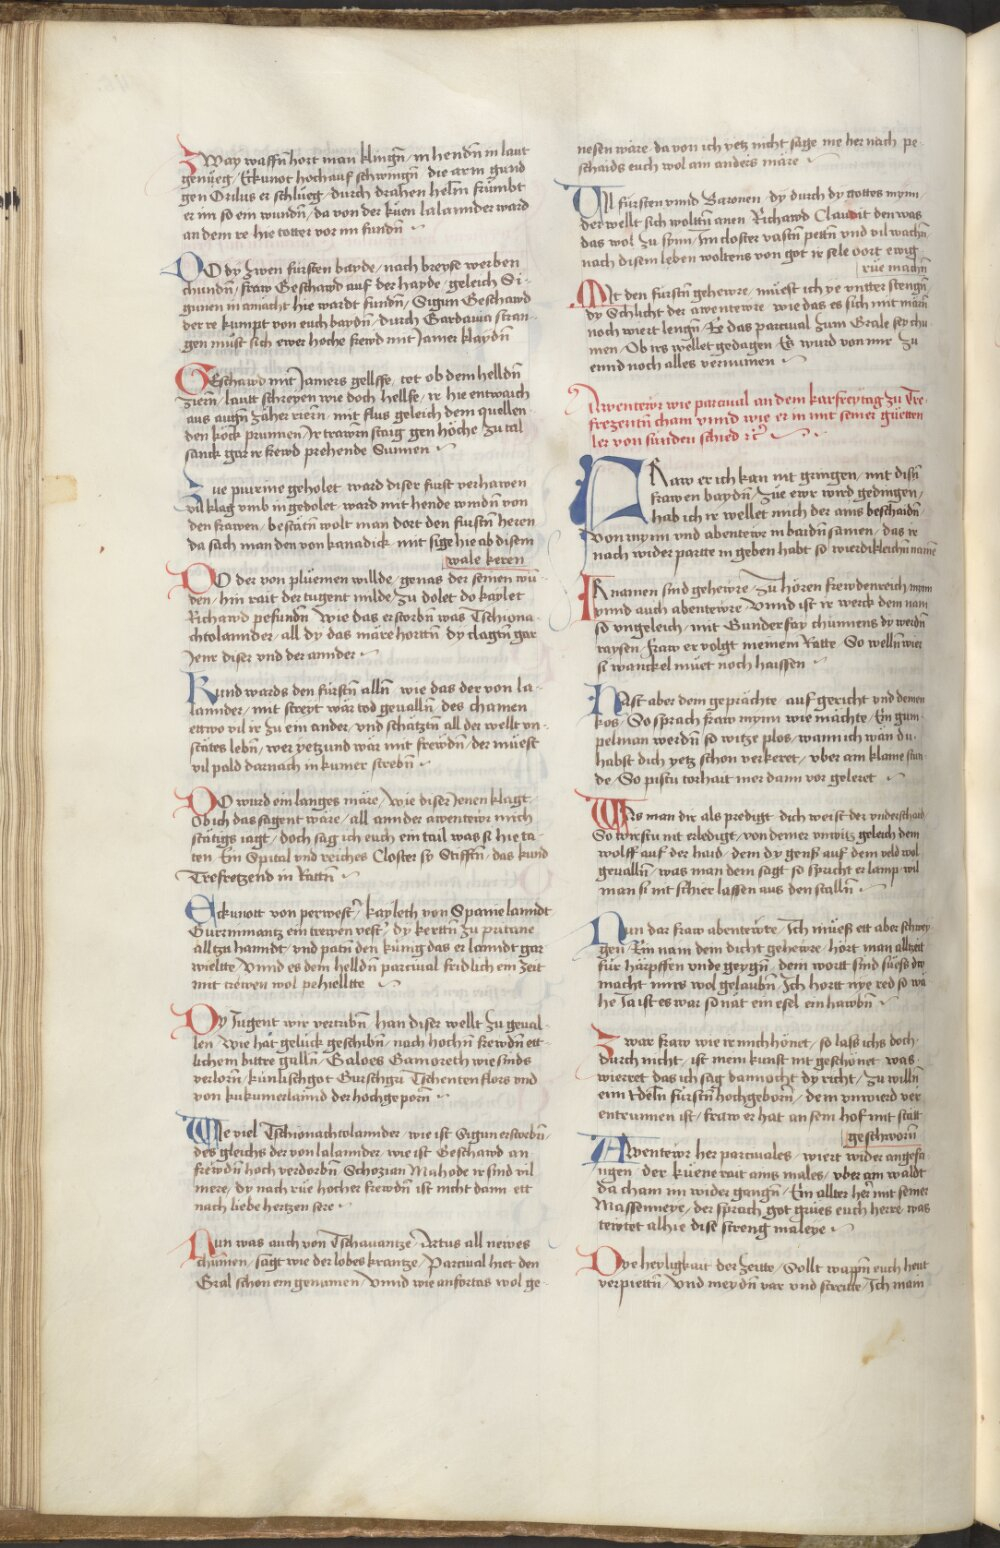 Zway waffn hort man klingn / in hendn in laut
genueg / Ekunot hoch auf schwingn die arm gund
gen Orilus er schlueg / durch drahen helm frumbt
er im so ein wundn / da von der kuen lalannder ward
an dem re hie totter vor im fundn
Do dy zwen fursten bayde / nach breyse werben
chundn / fraw Geschawd auf der hayde / geleich Si-
gunen in amacht hie wardt fundn / Sigun Geschawd
der re kumpt von euch baydn / durch Gardauia stran-
gen muest sich ewer hoche frewd mit Jamer klaydn
Geschawd mit Jamers gellffe / tot ob dem helldn
ziern / lautt schreyen wie doch hellfe / ir hie entwaich
aus augn zaher riern / mit flus geleich dem quellen-
den kock prunnen / Ir trawrn staig gen hoche zu tal
sanck gar ir frewd prehende Sunnen
Zue piurine geholet ward diser furst verhawen
vil klag vmb in gedolet / ward mit hende windn von
den frawen / bestatn wolt man dort den furstn heren
da sach man den von kanadick / mit sige hie ab disem
wale keren
Do der von pluemen willde / genas der seinen wu-
den / hin rait der tugent milde / zu dolet do kaylet
Richawd pefundn wie das erstordn was Tschiona-
chtolannder / all dy das mare horttn dy clagtn gar
Jenr diser vnd der annder
Kund wards den furstn alln / wie das der von la-
lannder / mit streyt war tod geualln / des chamen
ettwo vil ir zu ein ander / vnd schatztn all der wellt vn-
states lebn / wer yetzund war mit frewdn / der muest
vil pald darnach in kumer strebn
Do wurd ein langes mare / wie diser Jenen klagt
ob ich das sagent ware / all annder awentewr mich
statigs iagt / doch sag ich euch ein tail was si hie ta-
ten Ein Spital vnd reiches Closter sy Stifftn / das kund
Trefretzend in Rattn
Eckunott von perwest / kayleth von Spanie lanndt
Gurnimantz ein trewen vest / dy kerttn zu patane
all tzu hanndt / vnd patn den kunig das er lanndt gar
wieltte / Vnnd es dem helldn parcival fridlich ein zeit
mit trewen wol pehielltte
Dy Jugent wir vertribn / han diser wellt zu geual-
len / Wie hat geluck geschibn / nach hochn frewdn ett-
lichem bittre galln / Galoes Gamoreth wie sinds
verlorn / kunlischgot Gurschgri Tschentenflors vnd
von kukumerlannd der hochgeporn
Wie viel Tschionachtolannder / wie ist Sigun erstorbn /
des gleichs der von lalannder / wie ist Geschawd an
frewdn hoch verdordn Schozian Mahode ir sind vil
mere / dy nach rue hocher frewdn ist nicht dann ett
nach liebe hertzen sere
Nun was auch von Tschauantze / Artus all newes
chumen / sagt wie der lobes krantze / Parcival hiet den
Gral schon ein genumen / Vnnd wie anfortas wol ge-
nesen ware / da von ich yetz nicht sage me her nach pe-
schaids euch wol am anders mare
All fursten vnnd Baronen / dy durch dy gottes mynn /
der wellt sich wolttn anen Richawd Claudit den was
das wol zu synn / Im closter vastn pettn vnd vil wachn /
nach disem leben woltens von got ir sele dort ewig
rue machn
Mit den furstn gehewre / muest ich ye vntter stengn
dy Schlicht der awentewre wie das es sich mit marn
noch wiert lengn / Ee das parcival zum Grale sey chu-
men / Ob irs wellet gedagen / Es wurd von mir zu
ennd noch alles vernumen
Awentewr wie parcival an dem karfreytag zu Tre-
frezentn cham vnnd wie er in mit seiner guetten
ler von sunden schied ec
Fraw er ich kan nit gringen / mit disn
frawen baydn / zue ewr wird gedingen /
hab ich ir wellet mich der ains beschaidn
von mynn vnd abentewr in baidn samen / das ir
nach wider partte in geben habt so wierdikleichn name
Ir namen sind gehewre / zu horen frewdenreich mynn
vnnd auch abentewre / Vnnd ist ir werck dem nam
so vngeleich / mit Gunderfay chunnens dy werdn
raysen / fraw er volgt meinem Ratte So welln wier
si wanckel muet noch haissen
Hast aber dem geprachte auf gericht vnd deinen
kos / So sprach fraw mynn wie machte / Ein gum-
pelman werdn so witze plos / wann ich wan du
habst dich yetz schon verkeret / vber am klaine stun-
de / So pistu torhait mer dann vor geleret
Was man dir als predigt dich weist der vnderschaid
So wirstu nit erledigt / von deiner vnwitz geleich dem
wolff auf der haid / dem dy gens auf dem veld wol
geualln / was man dem sagt so spricht er lamp wil
man si mit schier lassen aus den stalln
Nun dar fraw abentewre / Ich mues ett aber schwey-
gen / Ein nam dem dicht gehewre / hort man alltzeit
fur harpffen vnde geygn / dem wortt sind suess die
macht mirs wol gelaubn / Ich hortt nye red so wa-
he Ja ist es war so nat ein esel ein hawbn
Zwar fraw wie ir mich honet / so lass ichs doch
durch nicht / ist mein kunst nit geschonet was
wierret das ich sag dannocht dy richt / zu willn
eim Edeln furstn hochgeborn / dem vnwierd ver
entrunnen ist / fraw er hat an sein hof mit statt
geschworn
Awentewr her parciuales / wiert wider angefa-
ngen der kuene rait ains males / vber am waldt
da cham im wider gangn / Ein allter her mit seiner
Massenneye / der sprach got grues euch herre was
tewtet alhie dise streng maleye
Dye heyligkait der zeitte / Sollt wappn euch heut
verpiettn / Vnd meydn var vnd streitte / Ich main